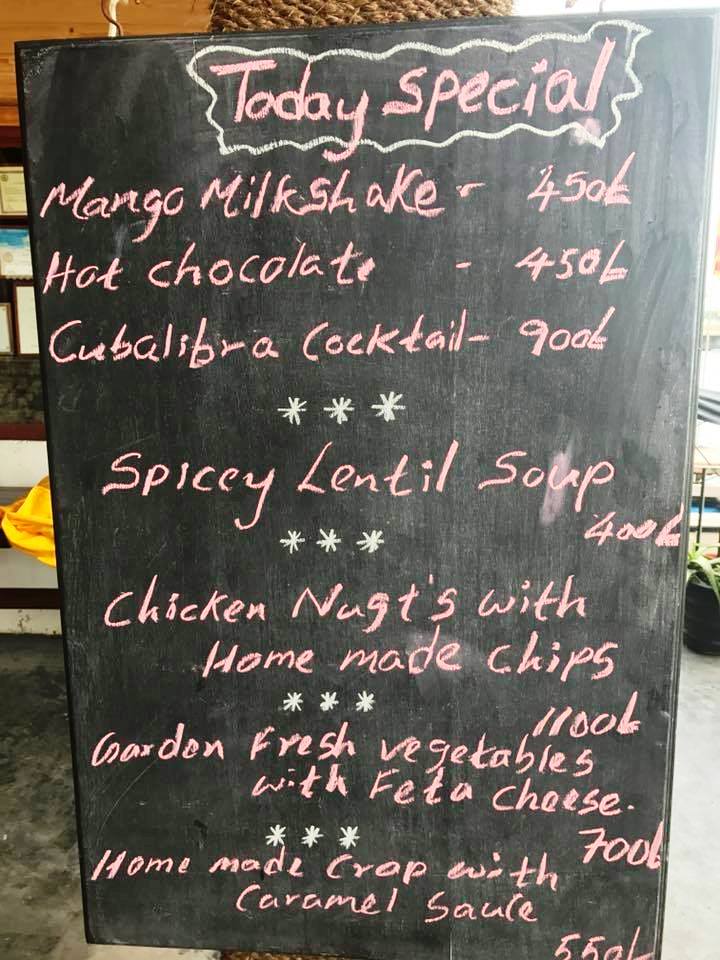 Today special
Mango Milkshake - 450/-
Hot chocolate - 450/-
Cubalibra Cocktail - 900/-
***
Spicey Lentil Soup
400/-
***
Chicken Nugt's with
Home made chips
***
1100/-
Garden Fresh vegetables
with Feta cheese.
***
700/-
Home made Crap with
Caramel Sauce
550/-